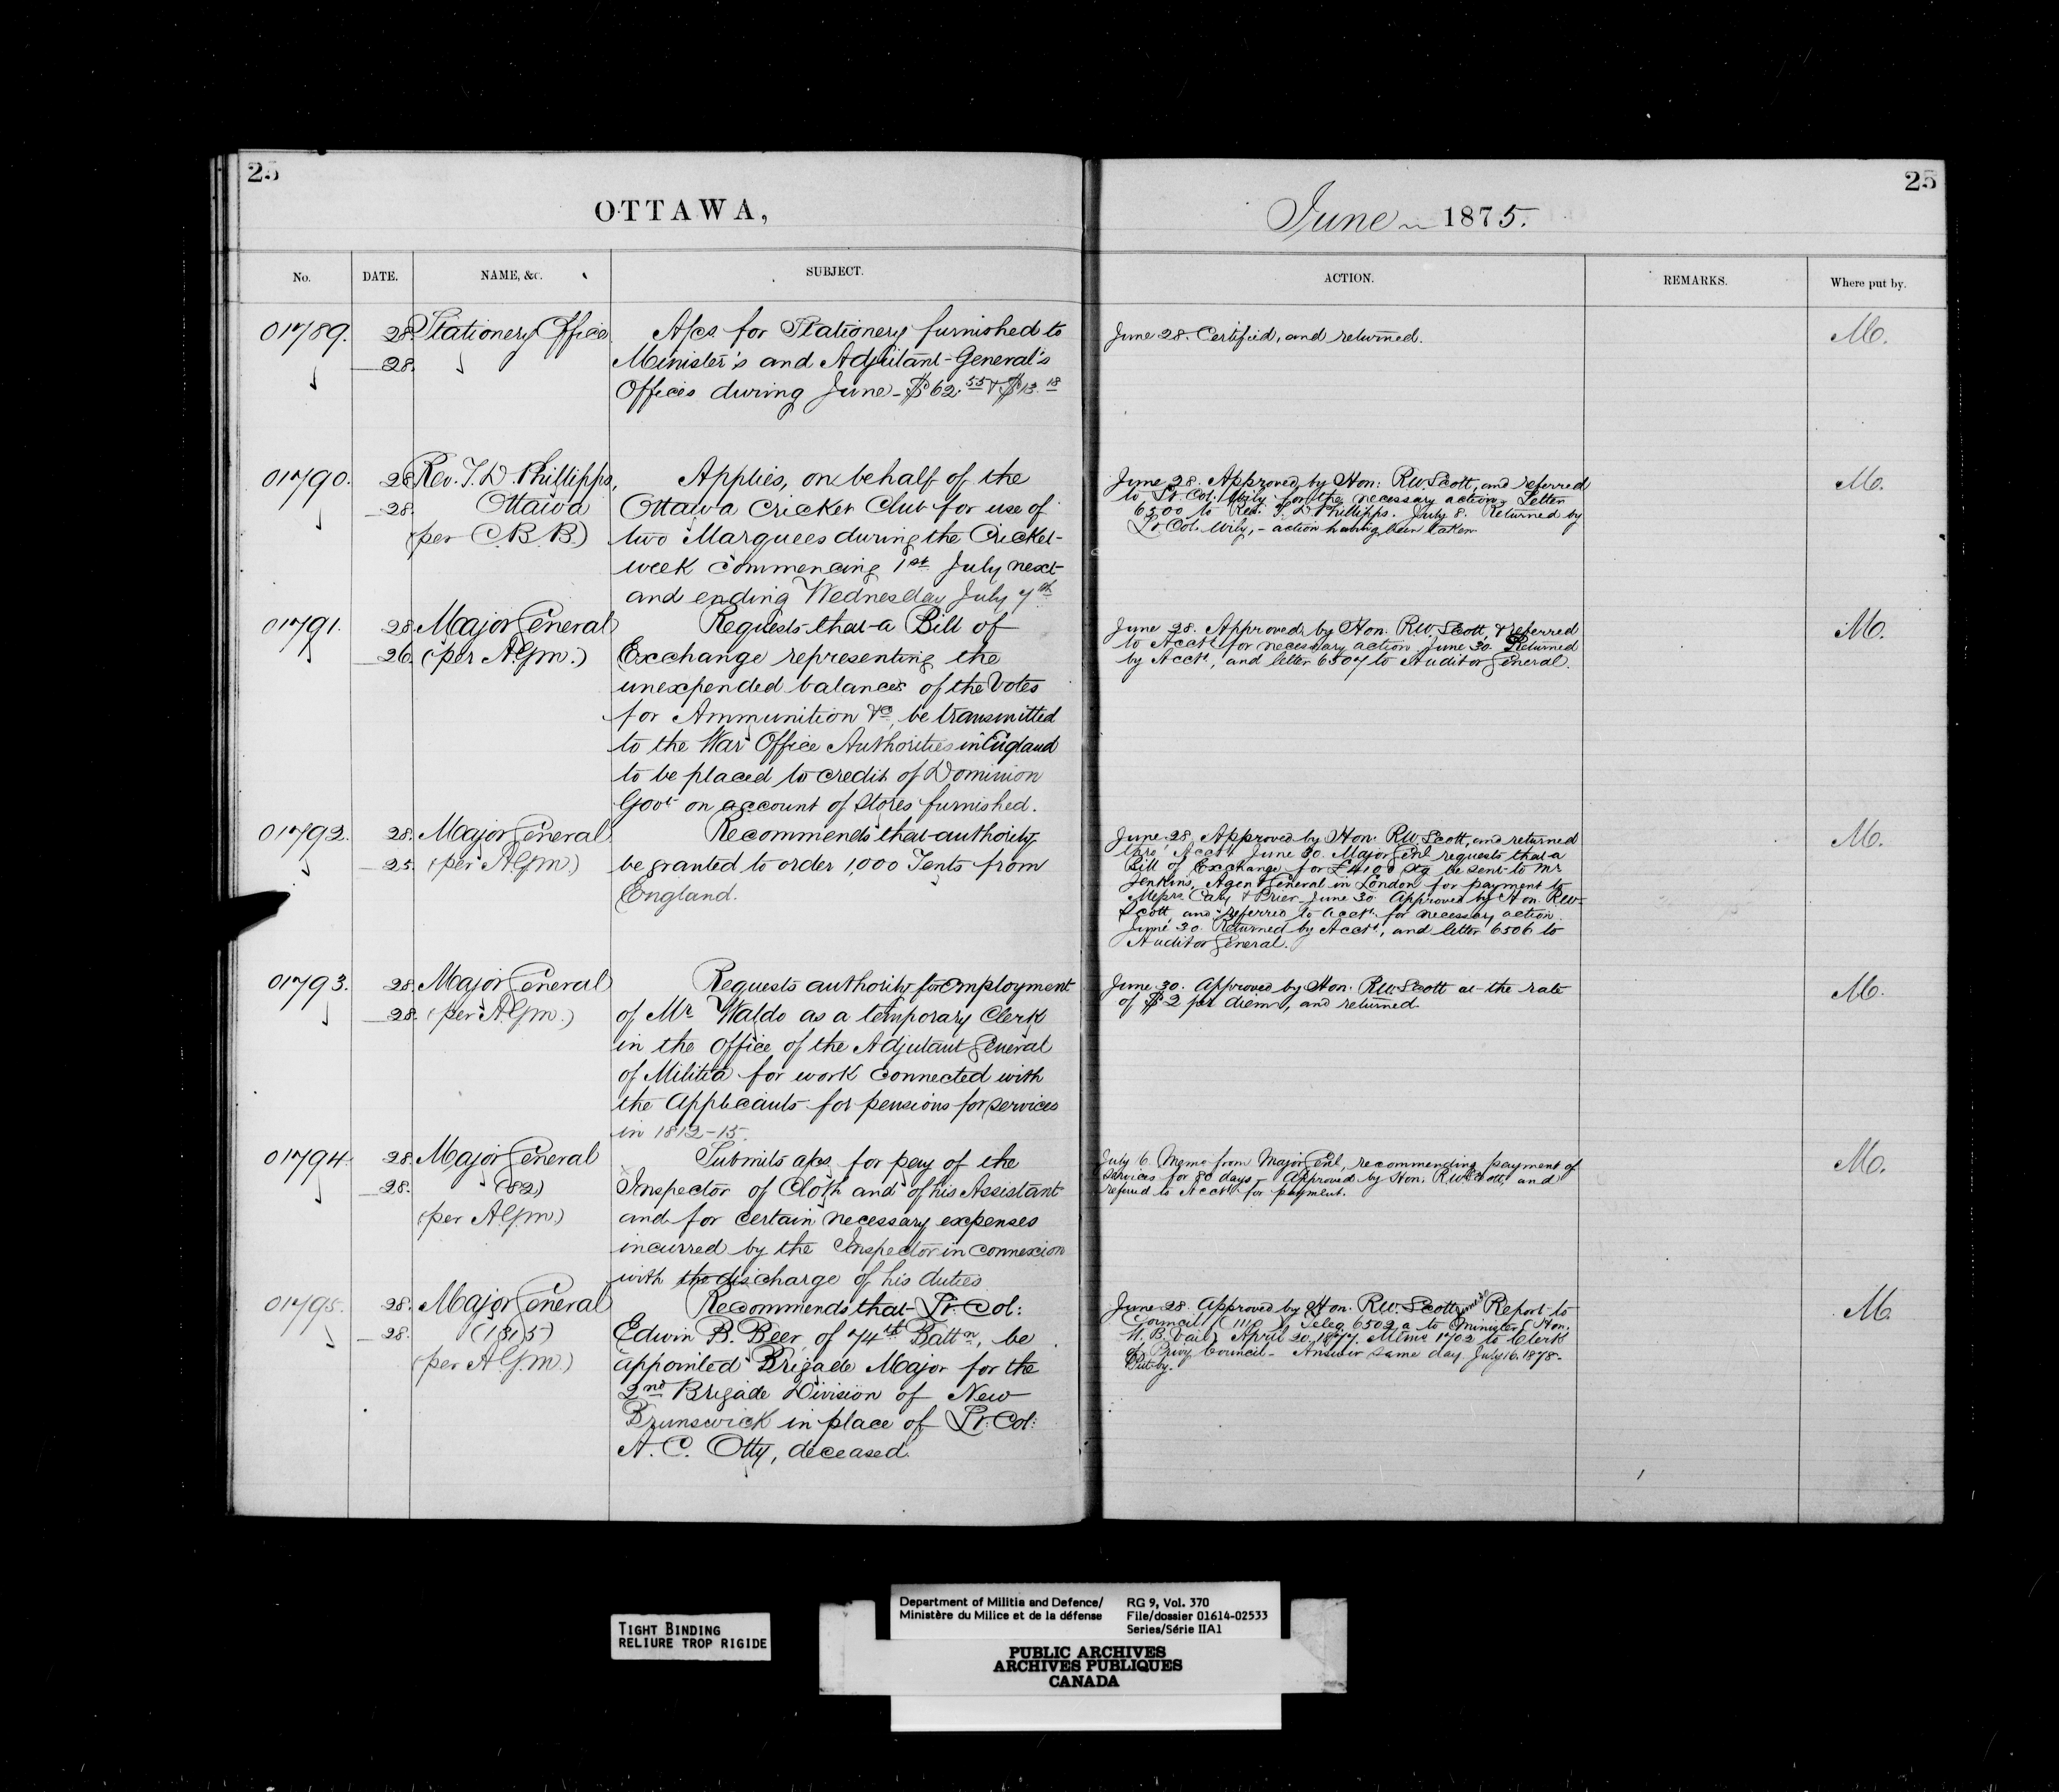 25
OTTAWA,
No. DATE. NAME, &c. SUBJECT.
01789. 28. Stationery Office A/cs for Stationery furnished to
28. Minister's and Adjutant-General's
Offices during June - $62.55 & $13.18
01790. 28. Rev. T. D. Phillipps, Applies, on behalf of the
28. Ottawa Ottawa Cricket Club for use of
(per C.B.B.) two Marquees during the Cricket-
week commencing 1st July next
and ending Wednesday July 7th
01791. 28. Major General Requests that a Bill of
26. (per A.G.M.) Exchange representing the
unexpended balances of the Votes
for Ammunition &c, be transmitted
to the War Office Authorities in England
to be placed to credit of Dominion
Govt on account of Stores furnished.
01792. 28. Major General Recommends that authority
25. (per A.G.M.) be granted to order 1,000 Tents from
England.
01793. 28. Major General Requests authority for employment
28. (per A.G.M.) of Mr Waldo as a temporary Clerk
in the Office of the Adjutant General
of Militia for work connected with
the Applicants for pensions for services
in 1812-15.
01794. 28. Major General Submits a/cs for pay of the
28. (82) Inspector of Cloth and of his Assistant
(per A.G.M.) and for certain necessary expenses
incurred by the Inspector in connexion
with the discharge of his duties
01795. 28. Major General Recommends that Lt. Col:
28. (1315) Edwin B. Beer, of 74th Battn, be
(per A.G.M.) appointed Brigade Major for the
2nd Brigade Division of New
Brunswick in place of Lt. Col:
A. C. Otty, deceased.
25
June 1875.
ACTION. REMARKS. Where put by.
June 28. Certified, and returned. M.
June 28. Approved by Hon: R.W. Scott, and referred M.
to Lt. Col. Wily for the necessary action. Letter
6500 to Rev. T. D. Phillipps. July 8. Returned by
Lt Col. Wily, - action having been taken
June 28. Approved by Hon. R.W. Scott, & referred M.
to Acctt for necessary action. June 30. Returned
by Acctt, and letter 6507 to Auditor General.
June 28. Approved by Hon. R.W. Scott, and returned M.
thro' Acctt. June 30. Major Genl requests that a
Bill of Exchange for £4100 Stg be sent to Mr
Jenkins, Agent General in London for payment to
Messrs Cary & June 30. Approved by Hon. R.W.
Scott, and referred to Acctt for necessary action.
June 30. Returned by Acctt, and letter 6506 to
Auditor General.
June 30. Approved by Hon. R.W. Scott at the rate M.
of $2 per diem, and returned
July 6. Memo from Major Genl, recommending payment of M.
services for 80 days - Approved by Hon. R.W. Scott, and
referred to Acctt for payment.
June 28. Approved by Hon. R.W. Scott. Report to M.
Council Teleg. 6502 a to Minister (Hon.
W. B. Vail) April 20. 1877. 1702 to Clerk
of Privy Council - Answer same day. July 16. 1878.
Put by.
TIGHT BINDING
RELIURE TROP RIGIDE
Department of Militia and Defence/
Ministère du Milice et de la défense
RG 9, Vol. 370
File/dossier 01614-02533
Series/Série IIA1
PUBLIC ARCHIVES
ARCHIVES PUBLIQUES
CANADA